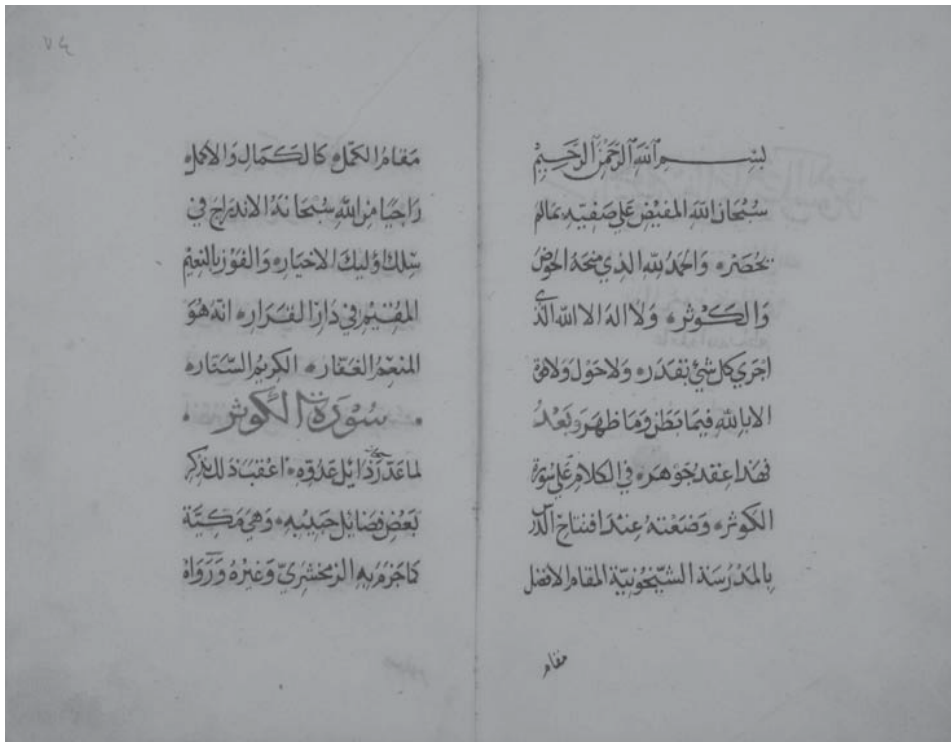 بِسْمِ اللَّهِ الرَّحْمَنِ الرَّحِيمِ
سُبْحَانَ اللَّهِ المُفِيضِ عَلَى صَفِيِّهِ مَا لَمْ
يُحْصَرْ ه وَالحَمْدُ لِلَّهِ الذِي مَنَحَهُ الحَوْضَ
وَالكَوْثَرْ ه وَلَا اله الا الله الَّذِي
اَجْرَى كل شَيْءٍ بِقَدَرْ ه وَلَا حَوْلَ وَلَا قُوَّةَ
الا بِاللَّهِ فِيمَا بَطَنَ وَمَا ظَهَرَ وَبَعْدُ
فَهَذَا عِقْدُ جَوْهَرْ ه فِي الكَلَامِ عَلَى سُورَةِ
الكَوْثَرْ ه وَضَعْتُهُ عِنْدَ افْتِتَاحِ الدَّرْسِ
بِالمَدْرَسَةِ الشَّيْخُونِيَّةِ المَقَامِ الافْضَل
مقام
٧٤
مَقَامِ الكُمَّلِ ه كَالكَمَالِ وَالاكْمَلِ ه
رَاجِيًا مِنَ اللَّهِ سُبْحَانَهُ الانْدِرَاجَ فِي
سِلْكِ اُولَيكَ الاخْيَارْ ه وَالفَوْزَ بِالنَّعِيمِ
المُقِيمِ فِي دَارِ القَرَارْ ه انَّهُ هُوَ
المُنْعِمُ الغَفَّارْ ه الكَرِيمُ السَّتَّارْ ه
سُورَةُ الكَوْثَرِ
لما عَدَّ رَذَايِلَ عَدُوِّهِ ه اعْقَبَ ذَلِكَ بِذِكْرِ
بَعْضِ فَضَايِلِ حَبِيبِهِ ه وَهِيَ مَكِّيَّة
كَمَا جَزَمَ بِهِ الزَّمَخْشَرِيُّ وَغَيْرُهُ وَرَوَاهُ